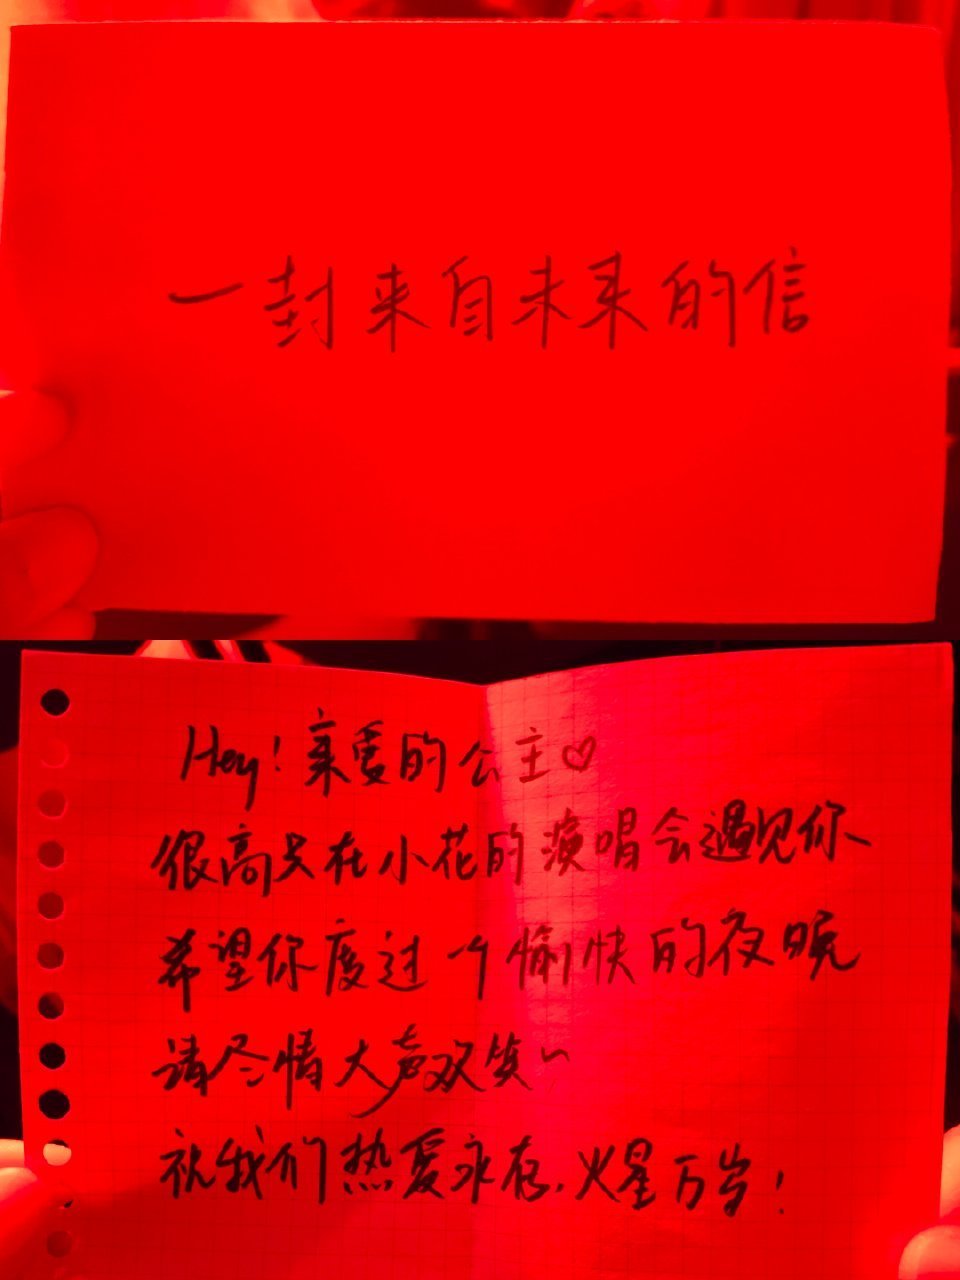 一封来自未来的信
Hey！亲爱的公主♡
很高兴在小花的演唱会遇见你
希望你度过一个愉快的夜晚
请尽情大声欢笑~
祝我们热爱永存，火星万岁！